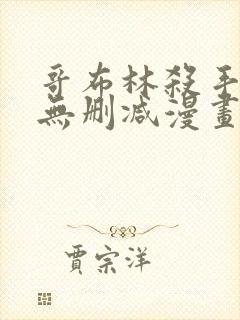 哥布林殺手
無删减漫畫
賈宗洋